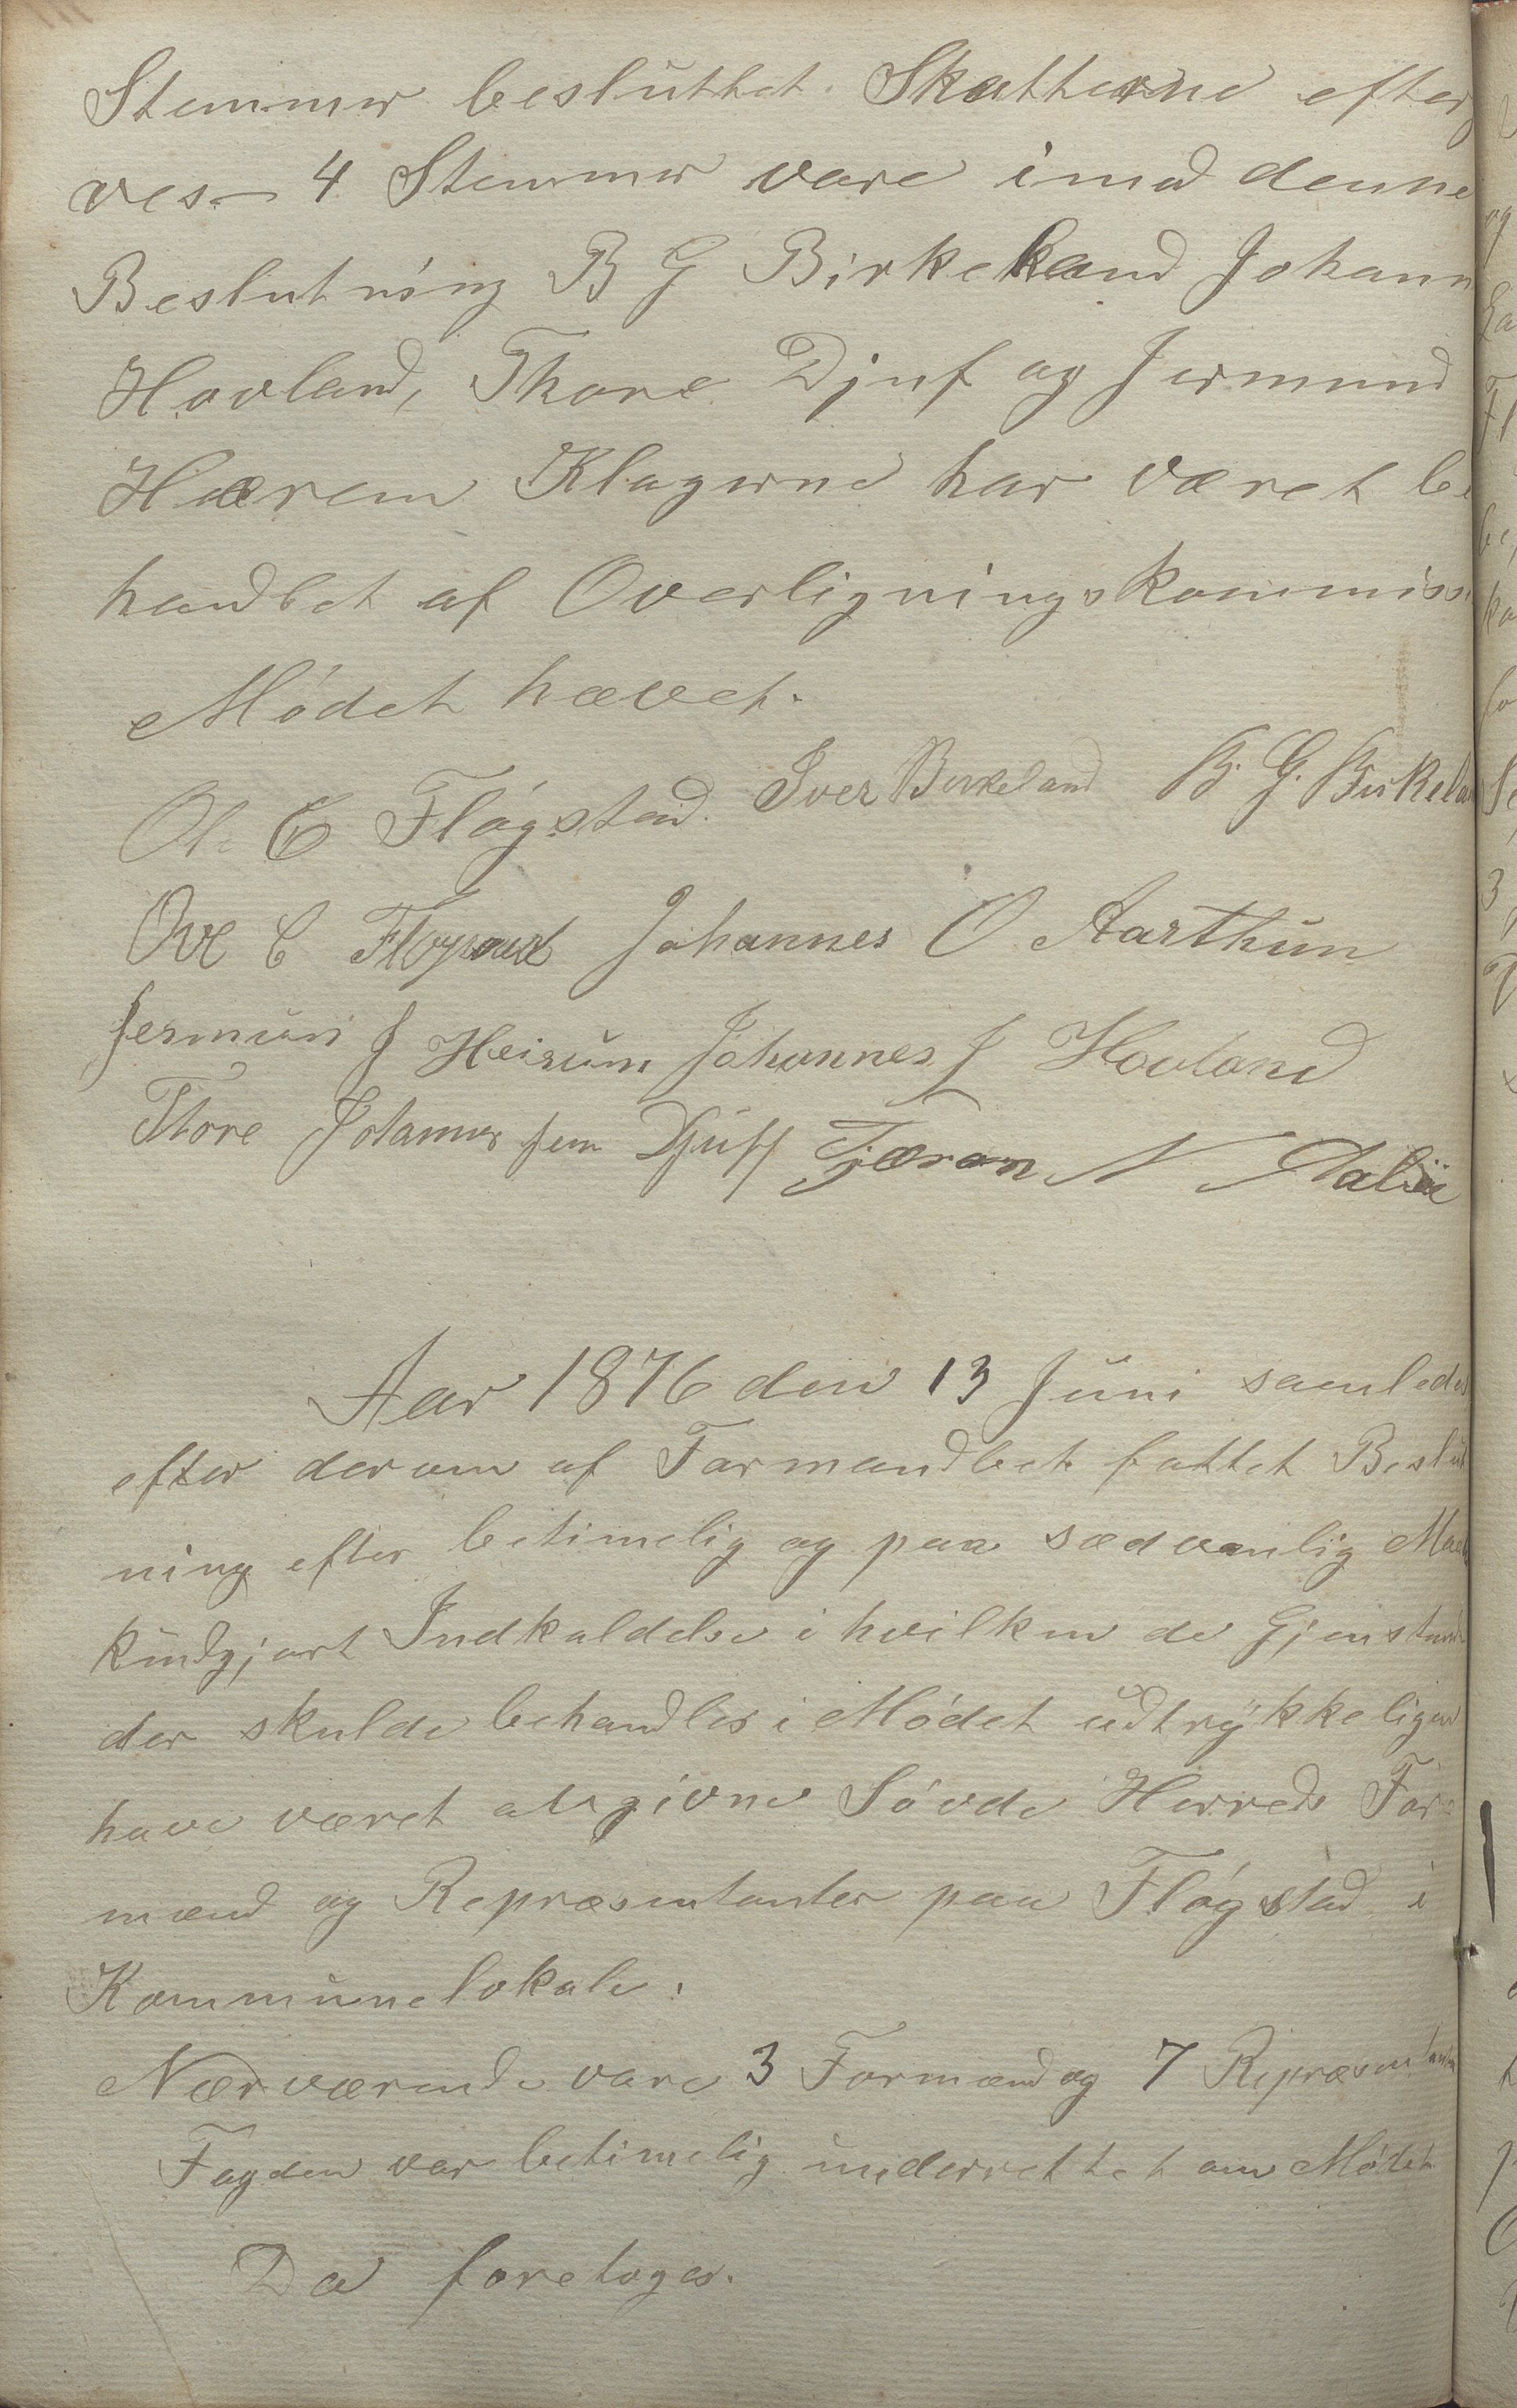 Stemmer besluttet. Skatterne efterg
ves — 4 Stemmer vare imod denne
Beslutning B G Birkeland Johann
Hovland, Thore Djuf og Jermund
Hærem Klagerne har været be
handlet af Overligningskommissi
Mødet hævet.
Ol. E Fløgstad. Iver Birkeland B. G. Birkelan
Ove E Johannes O Aarthun
Jermun J Heirum Johannes J Hovland
Thore Johannes sen Djuff Tjæran N
Aar 1876 den 13 Juni samledes
efter derom af Formandbet fattet Beslut
ning efter betimelig og paa sædvanlig Maa
kundgjort Indkaldelse i hvilken de Gjenstand
der skulde behandles i Mødet udtrykkeligen
have været angivne Søvde Herreds For=
mænd og Repræsentanter paa Fløgstad i
Kommunelokale.
Nærværende vare 3 Formænd og 7 Repræsentanter
Fogden var betimelig underrettet om Mødet
Da foretoges.